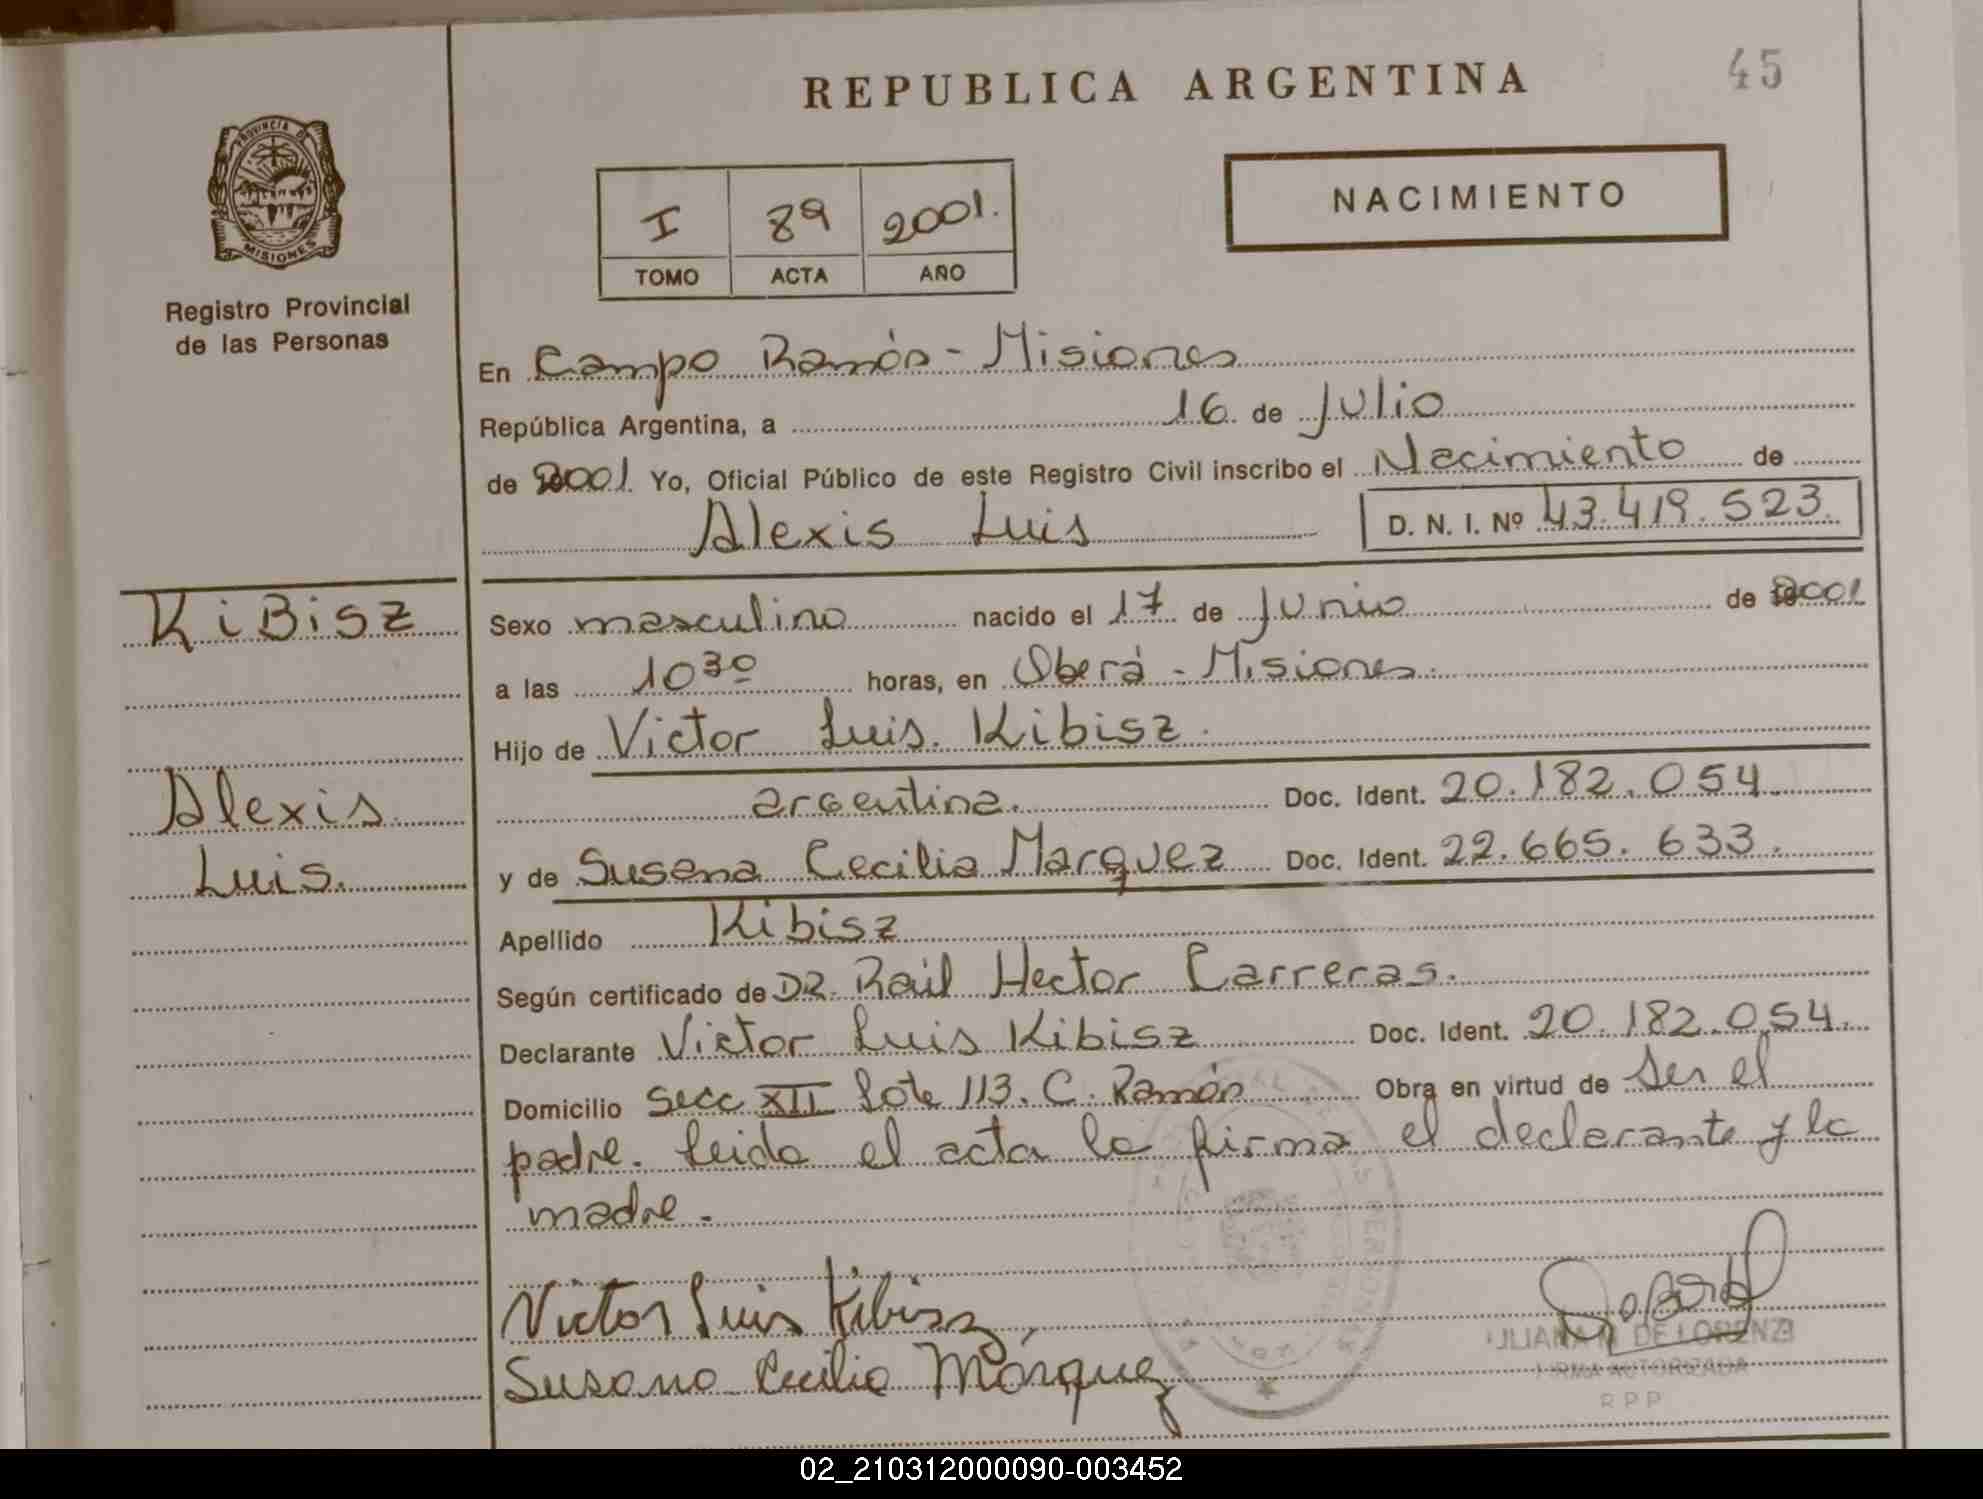 REPUBLICA ARGENTINA
45
PROVINCIA DE
MISIONES
Registro Provincial
de las Personas
I 89 2001.
TOMO ACTA AÑO
NACIMIENTO
En Campo Ramón - Misiones
República Argentina, a 16 de Julio
de 2001 Yo, Oficial Público de este Registro Civil inscribo el Nacimiento de
Alexis Luis D. N. I. Nº 43.419.523.
KiBisz
Alexis
Luis.
Sexo masculino nacido el 17 de Junio de 2001
a las 10 30 horas, en Oberá - Misiones.
Hijo de Victor Luis. Kibisz.
argentina. Doc. Ident. 20.182.054.
y de Susana Cecilia Marquez Doc. Ident. 22.665.633.
Apellido Kibisz
Según certificado de DR. Raúl Hector Carreras.
Declarante Victor Luis Kibisz Doc. Ident. 20.182.054.
Domicilio Secc XII Lote 113. C. Ramón Obra en virtud de Ser el
padre. Leida el acta la firma el declarante y la
madre.
Victor Luis Kibisz
Susana Cecilia Márquez
DE LORENZI
FIRMA AUTORIZADA
R P P
02_210312000090-003452